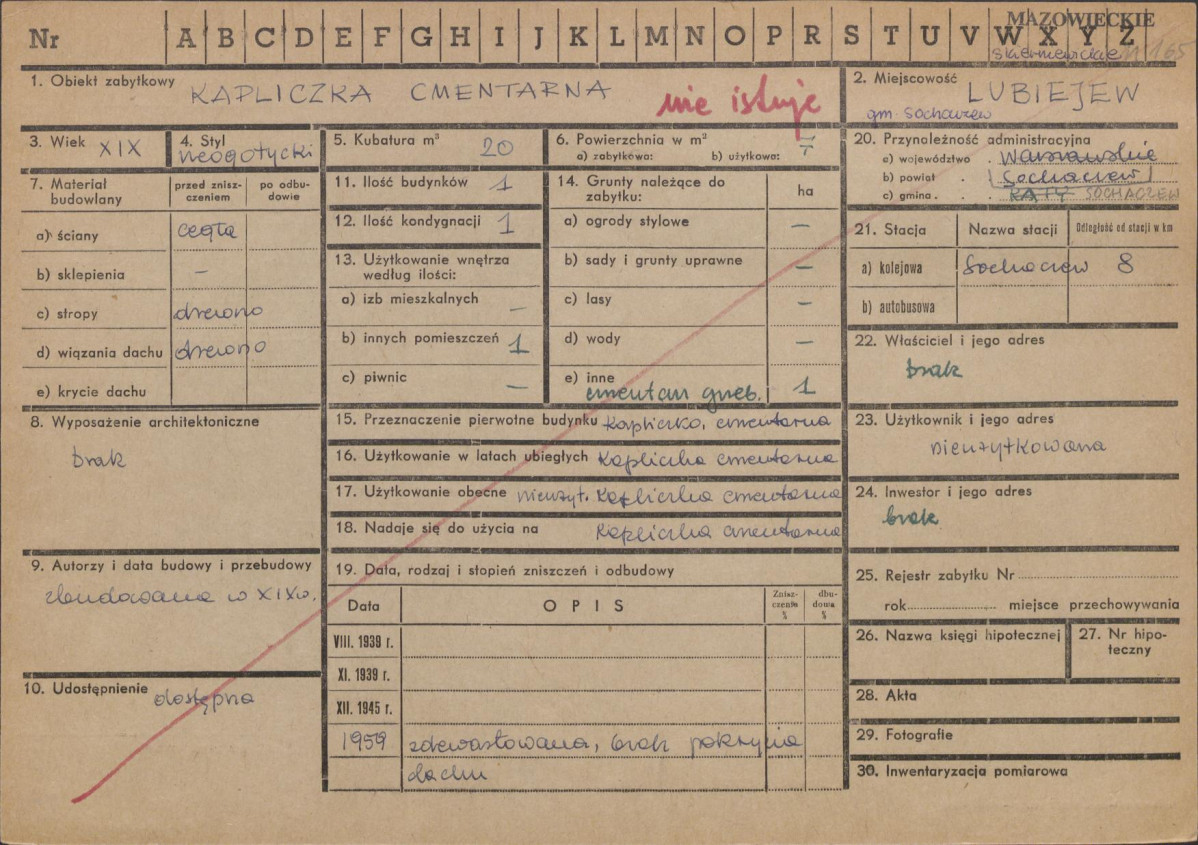 Nr A B C D E F G H I J K L M N O P R S T U V W X Y Z
MAZOWIECKIE
skierniewickie
165
1. Obiekt zabytkowy KAPLICZKA CMENTARNA
nie istnieje
2. Miejscowość LUBIEJEW
gm. Sochaczew
3. Wiek XIX
4. Styl neogotycki
5. Kubatura m³ 20
6. Powierzchnia w m²
a) zabytkowa: b) użytkowa: 7
7. Materiał budowlany
przed zniszczeniem
po odbudowie
a) ściany cegła
b) sklepienia –
c) stropy drewno
d) wiązania dachu drewno
e) krycie dachu
8. Wyposażenie architektoniczne
brak
9. Autorzy i data budowy i przebudowy
zbudowana w XIX w.
10. Udostępnienie dostępna
11. Ilość budynków 1
12. Ilość kondygnacji 1
13. Użytkowanie wnętrza
według ilości:
a) izb mieszkalnych –
b) innych pomieszczeń 1
c) piwnic –
14. Grunty należące do
zabytku: ha
a) ogrody stylowe –
b) sady i grunty uprawne –
c) lasy –
d) wody –
e) inne 1
cmentarz grzeb.
15. Przeznaczenie pierwotne budynku Kapliczka cmentarna
16. Użytkowanie w latach ubiegłych Kapliczka cmentarna
17. Użytkowanie obecne nieużyt. Kapliczka cmentarna
18. Nadaje się do użycia na Kapliczka cmentarna
19. Data, rodzaj i stopień zniszczeń i odbudowy
Data OPIS Zniszczenia % dbudowa %
VIII. 1939 r.
XI. 1939 r.
XII. 1945 r.
1959 zdewastowana, brak pokrycia
dachu
20. Przynależność administracyjna
a) województwo . Warszawskie
b) powiat . Sochaczew
c) gmina . . KĄTY SOCHACZEW
21. Stacja Nazwa stacji Odległość od stacji w km
a) kolejowa Sochaczew 8
b) autobusowa
22. Właściciel i jego adres
brak
23. Użytkownik i jego adres
nieużytkowana
24. Inwestor i jego adres
brak
25. Rejestr zabytku Nr
rok miejsce przechowywania
26. Nazwa księgi hipotecznej
27. Nr hipoteczny
28. Akta
29. Fotografie
30. Inwentaryzacja pomiarowa